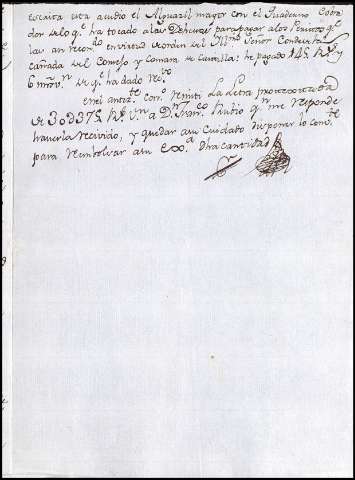 escrita esta acudio el Alguazil mayor con el Quaderno Cobra
dor de lo q.e ha tocado a las Dehesas para pagar a los q.e
las an recon.do en virtud de orden del Ill.mo Señor Conde de la
cañada del Consejo y Camara de Castilla: he pagado 145 R.s y
6 mrs v.n de q.e ha dado re.vo
En el anter.te cor.o remiti la Letra
de 30d375 R.s V.n a D.n Fran.co Rubio q.n me responde
haverla recivido, y quedar a su Cuidado disponer lo con.te
para reembolsar a su Ex.a dha cantidad